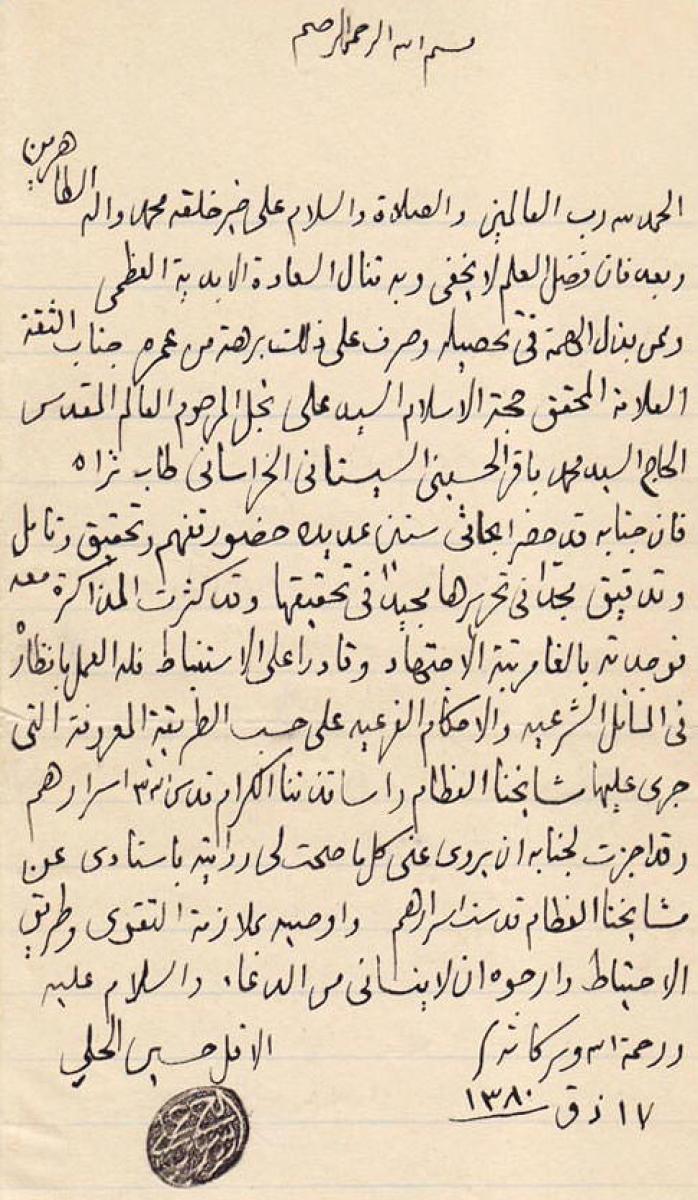 بسم الله الرحمن الرحيم
الحمد لله رب العالمين والصلاة والسلام على خير خلقه محمد واله الطاهرين
وبعد فان فضل العلم لا يخفى وبه تنال السعادة الابدية العظمى
وممن بذل الهمة في تحصيله وصرف على ذلك برهة من عمره جناب الثقة
العلامة المحقق حجة الاسلام السيد علي نجل المرحوم العالم المقدس
الحاج السيد محمد باقر الحسيني السيستاني الخراساني طاب ثراه
فان جنابه قد حضر ابحاثي سنين عديدة حضور تفهم وتحقيق وتامل
وتدقيق مجدا في تحريرها مجيدا في تحقيقها وقد كثرت المذاكرة معه
فوجدته بالغا مرتبة الاجتهاد وقادرا على الاستنباط فله العمل بانظاره
في المسائل الشرعيه والاحكام الفرعيه على حسب الطريقة المعروفة التي
جرى عليها مشايخنا العظام واساتذتنا الكرام قدس الله اسرارهم
وقد اجزت لجنابه ان يروى عني كل ما صحت لي روايته باسنادى عن
مشايخنا العظام قدست اسرارهم واوصيه بملازمة التقوى وطريق
الاحتياط وارجوه ان لا ينساني من الدعاء والسلام عليه
ورحمة الله وبركاته
الاقل حسين الحلي
١٧ ذ ق ١٣٨٠